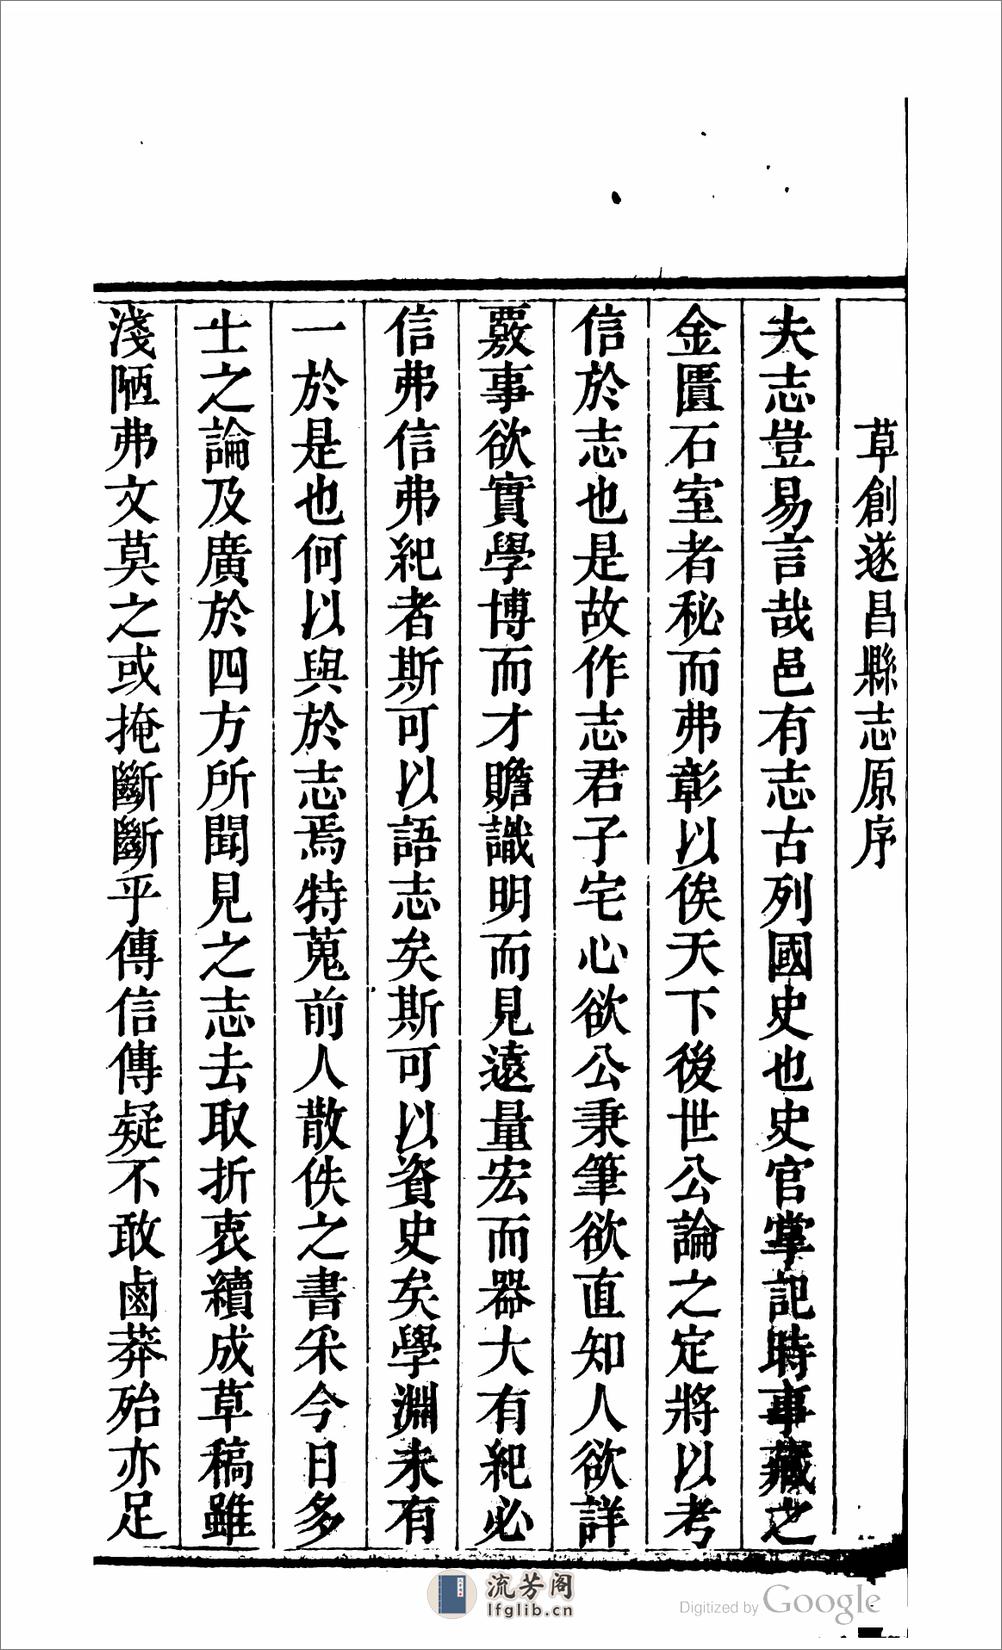 草創遂昌縣志原序
夫志豈易言哉邑有志古列國史也史官掌記時事藏之
金匱石室者秘而弗彰以俟天下後世公論之定將以考
信於志也是故作志君子宅心欲公秉筆欲直知人欲詳
覈事欲實學博而才贍識明而見遠量宏而器大有紀必
信弗信弗紀者斯可以語志矣斯可以資史矣學淵未有
一於是也何以與於志焉特蒐前人散佚之書采今日多
士之論及廣於四方所聞見之志去取折衷續成草稿雖
淺陋弗文莫之或掩斷斷乎傳信傳疑不敢鹵莽殆亦足
流芳阁
lfglib.cn
Digitized by Google